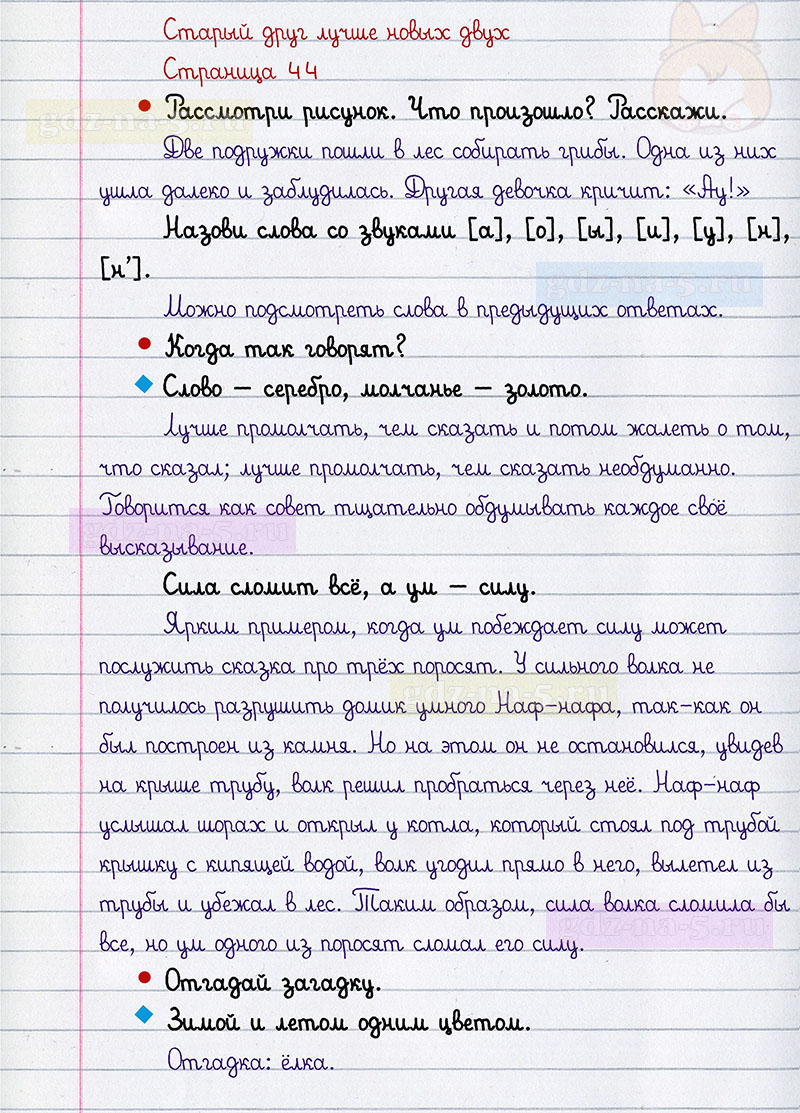 Старый друг лучше новых двух
Страница 44
Рассмотри рисунок. Что произошло? Расскажи.
gdz-na-5.ru
Две подружки пошли в лес собирать грибы. Одна из них
ушла далеко и заблудилась. Другая девочка кричит: «Ау!»
Назови слова со звуками [а], [о], [ы], [и], [у], [н],
[н’].
gdz-na-5.ru
Можно подсмотреть слова в предыдущих ответах.
Когда так говорят?
Слово — серебро, молчанье — золото.
Лучше промолчать, чем сказать и потом жалеть о том,
что сказал; лучше промолчать, чем сказать необдуманно.
Говорится как совет тщательно обдумывать каждое своё
gdz-na-5.ru
высказывание.
Сила сломит всё, а ум — силу.
Ярким примером, когда ум побеждает силу может
послужить сказка про трёх поросят. У сильного волка не
gdz-na-5.ru
получилось разрушить домик умного Наф-нафа, так-как он
был построен из камня. Но на этом он не остановился, увидев
на крыше трубу, волк решил пробраться через неё. Наф-наф
услышал шорах и открыл у котла, который стоял под трубой
крышку с кипящей водой, волк угодил прямо в него, вылетел из
трубы и убежал в лес. Таким образом, сила волка сломила бы
gdz-na-5.ru
все, но ум одного из поросят сломал его силу.
Отгадай загадку.
Зимой и летом одним цветом.
Отгадка: ёлка.